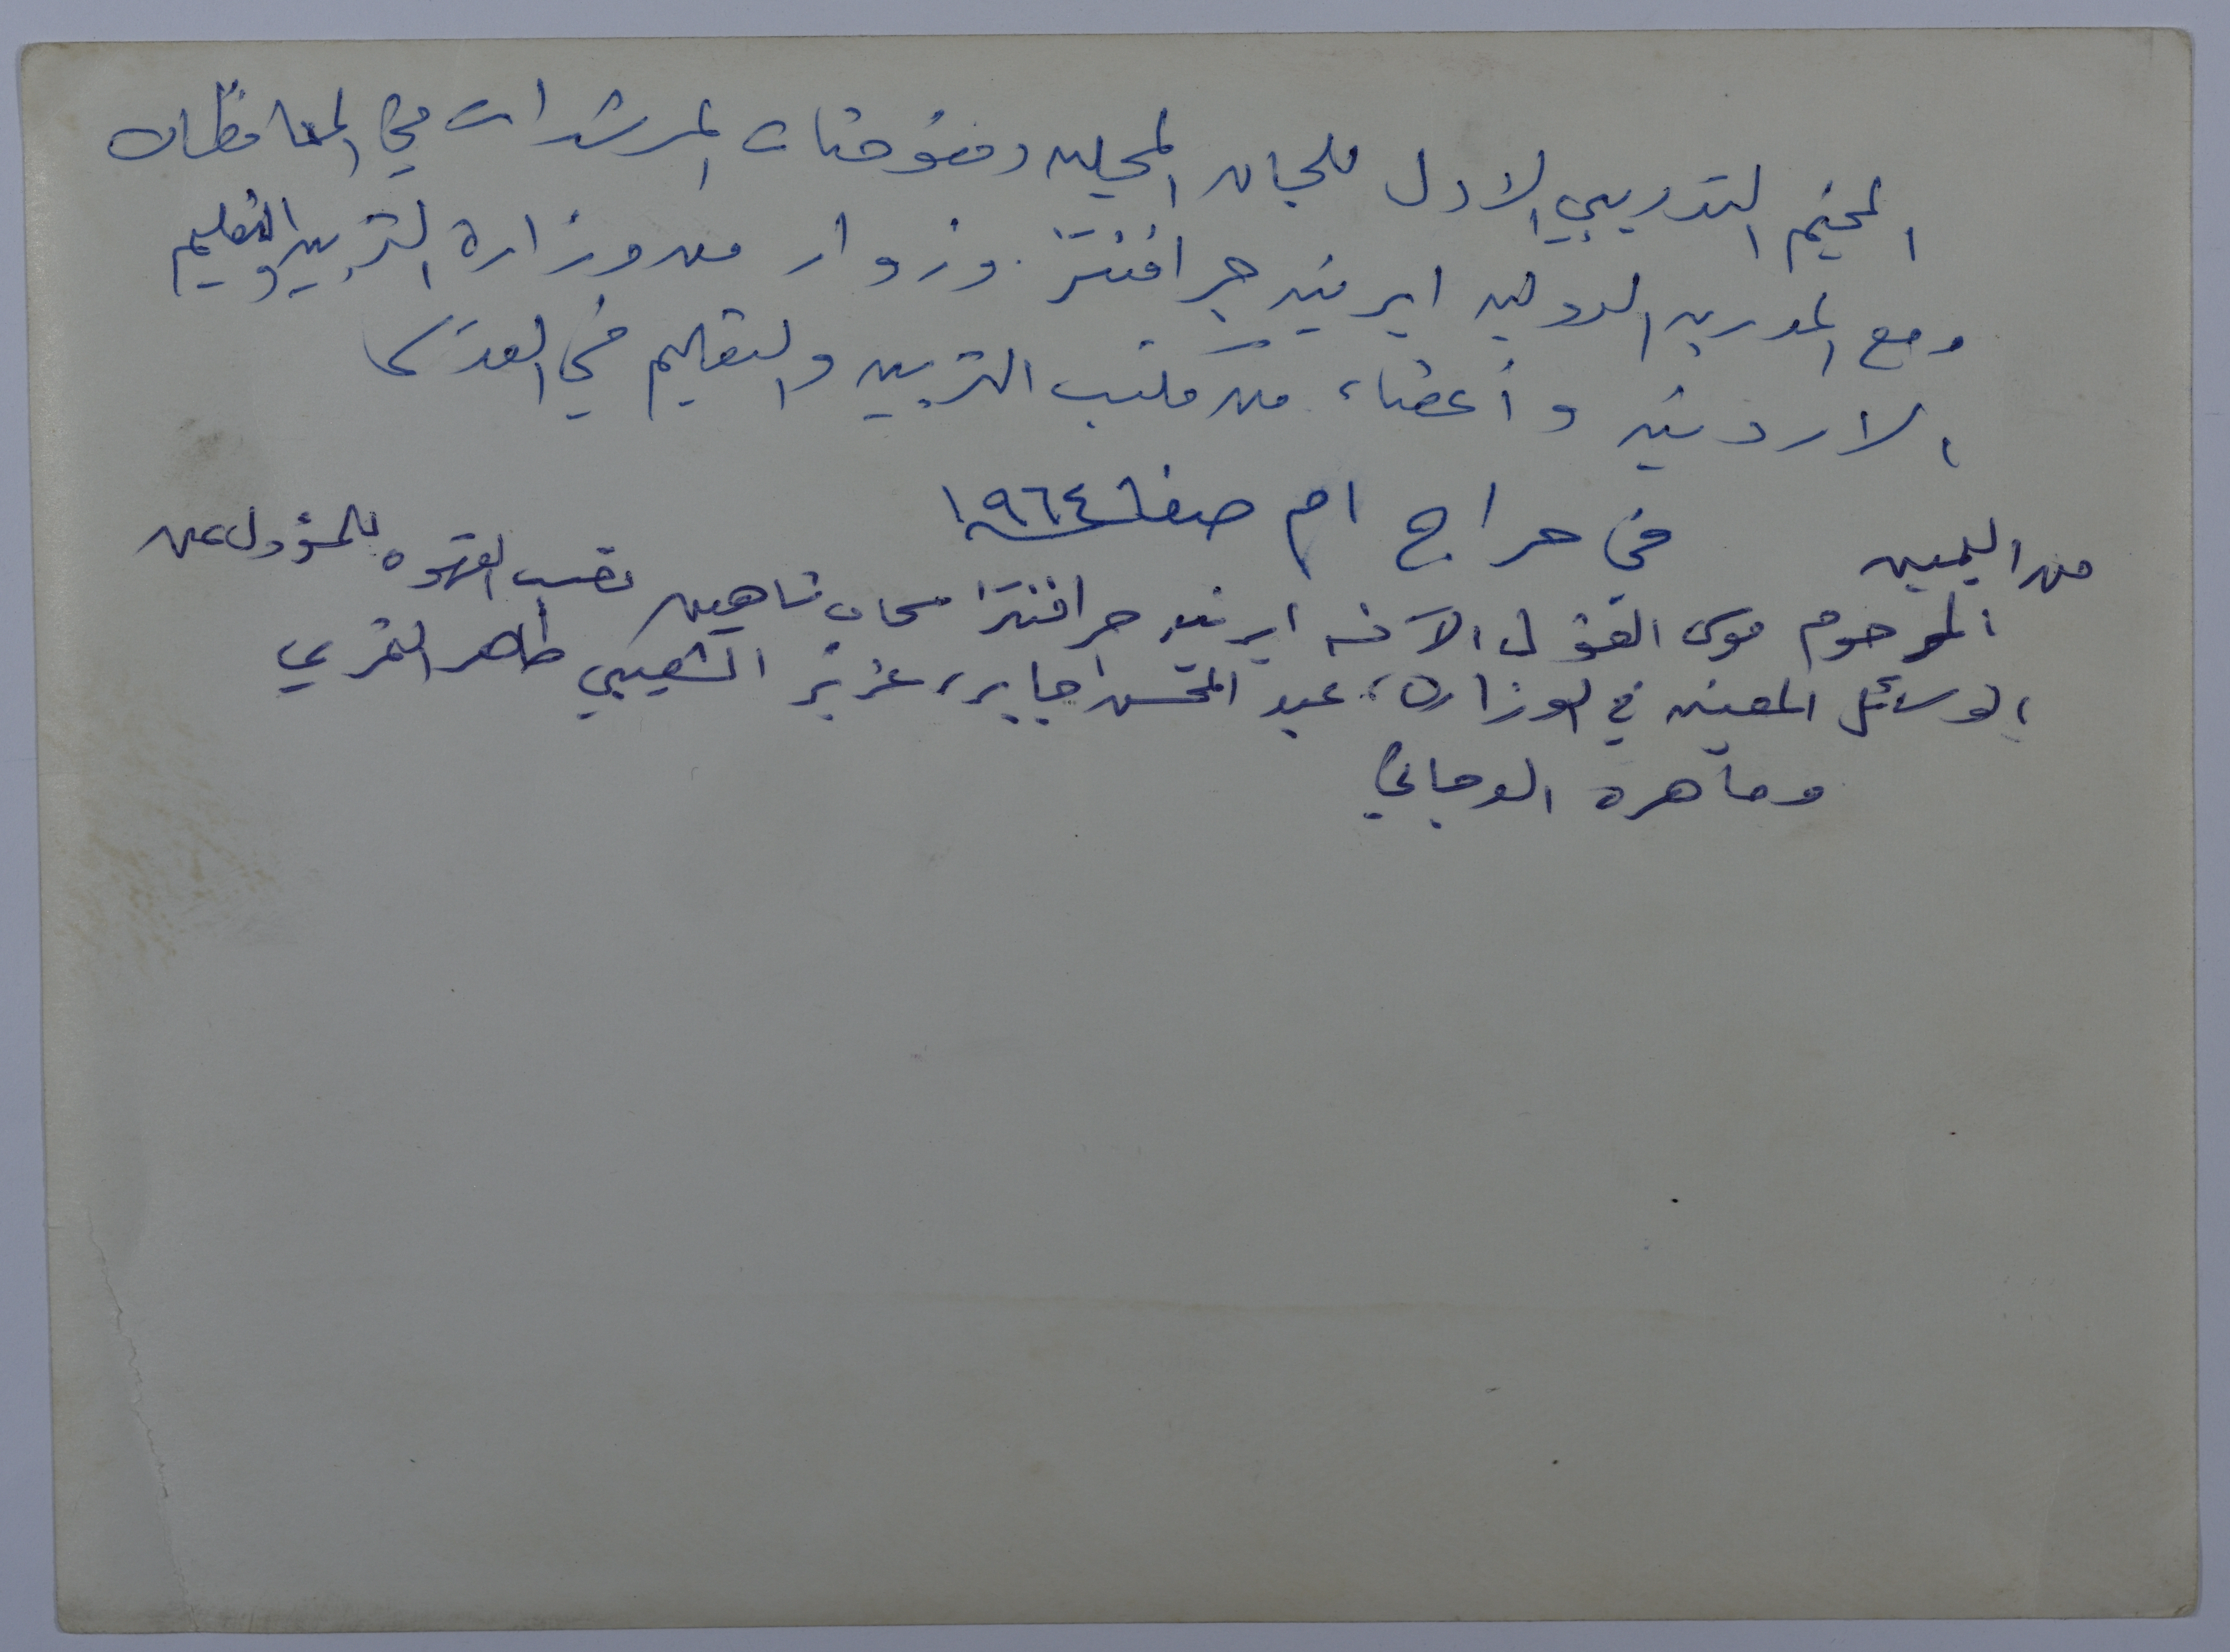 المخيم التدريبي الاول للجان المحليه ومفوضات المرشدات في المحافظات
ومع المدربه الدوليه ايرينه جرافنتز وزوار من وزارة التربيه والتعليم
الاردنيه وأعضاء من مكتب التربيه والتعليم في القدس
في حراج ام صفا ١٩٦٤
من اليمين
المرحوم موسى الآنسه ايرينه جرافنتز شاهين تصب القهوه للمسؤول عن
الوسائل المعينه في الوزارة، عبد المحسن جابر، عزيز الشعيبي طاهر النمري
وماهره الدجاني